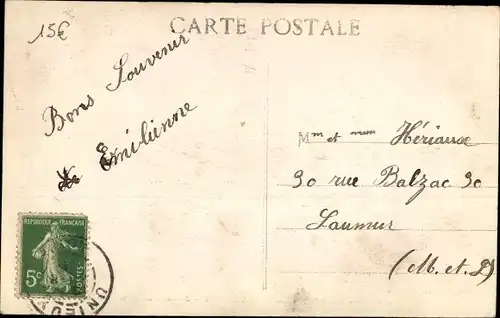 15€
CARTE POSTALE
Bons Souvenir
de Emilienne
Mm et mme Hériaux
30 rue Balzac 30
Saumur
(M. et L)
REPUBLIQUE FRANÇAISE
5c
POSTES
UNIEUX